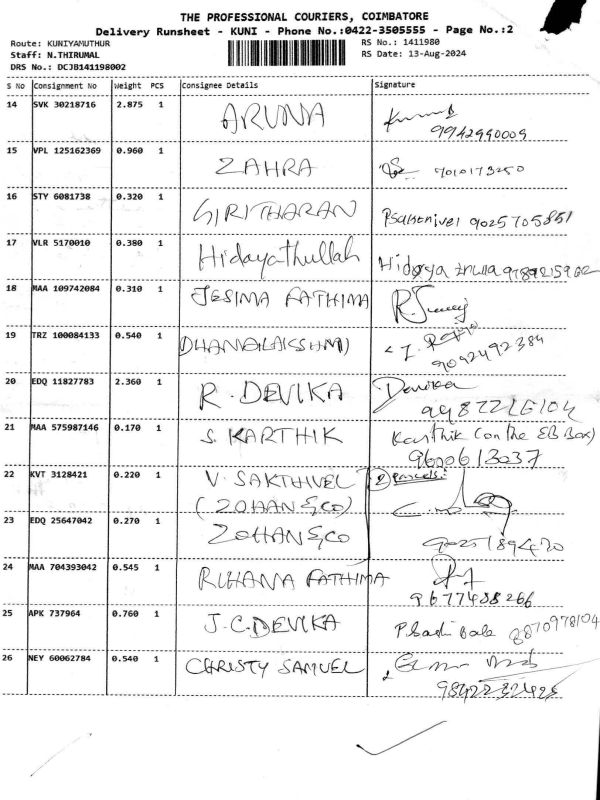 THE PROFESSIONAL COURIERS, COIMBATORE
Delivery Runsheet - KUNI - Phone No.:0422-3505555 - Page No.:2
Route: KUNIYAMUTHUR RS No.: 1411980
Staff: N.THIRUMAL RS Date: 13-Aug-2024
DRS No.: DCJB141198002
S No Consignment No Weight PCS Consignee Details Signature
14 SVK 30218716 2.875 1 ARUNA
9942990009
15 VPL 125162369 0.960 1 ZAHRA 7010173250
16 STY 6081738 0.320 1 GIRITHARAN
17 VLR 5170010 0.380 1 Hidayathullah
18 MAA 109742084 0.310 1 JESIMA FATHIMA
19 TRZ 100084133 0.540 1 DHANALAKSHMI
9092492384
20 EDQ 11827783 2.360 1 R. DEVIKA Devika
21 MAA 575987146 0.170 1 S. KARTHIK Karthik (on the EB Box)
9600613037
22 KVT 3128421 0.220 1 V. SAKTHIVEL
(ZOHAN & CO)
23 EDQ 25647042 0.270 1 ZOHAN & CO
24 MAA 704393042 0.545 1 RIHANA FATHIMA
9677488266
25 APK 737964 0.760 1 J.C.DEVIKA 8870978104
26 NEY 60062784 0.540 1 CHRISTY SAMUEL